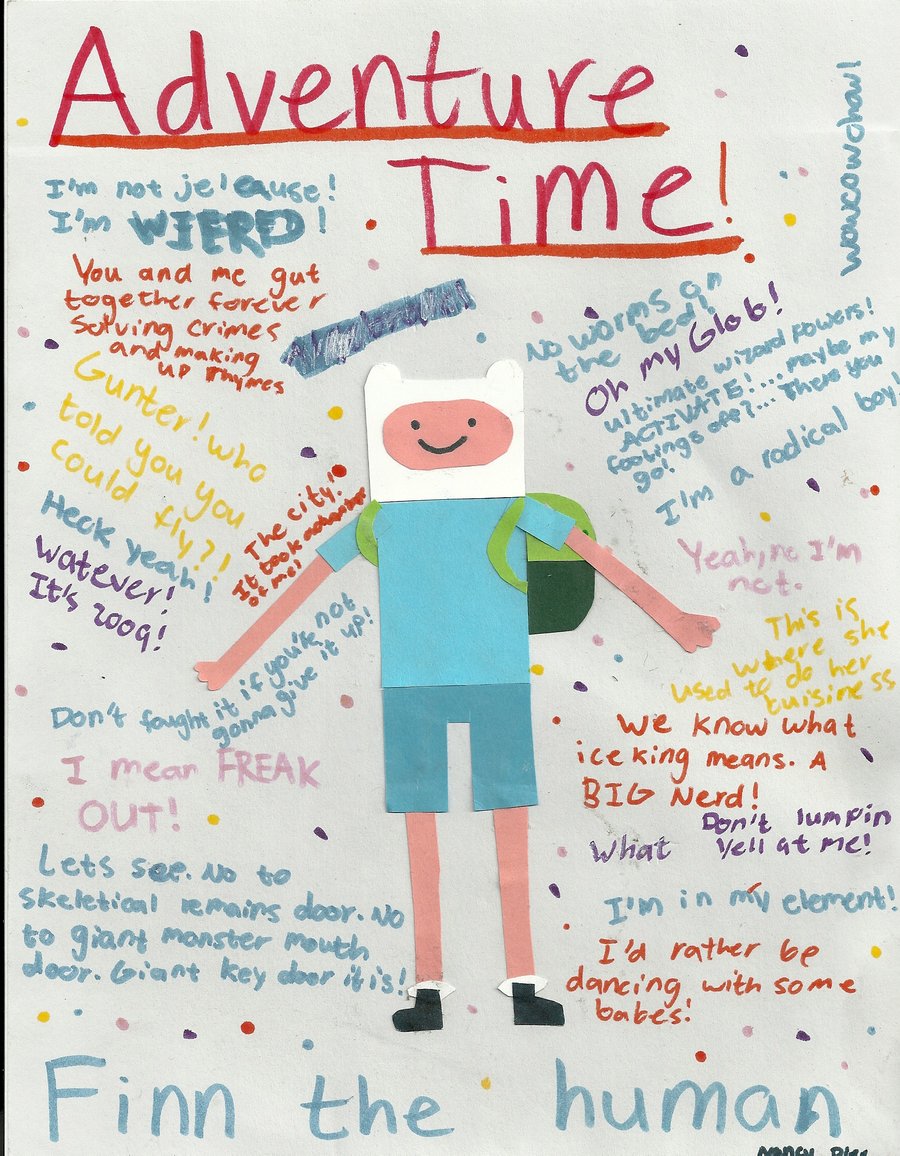 Adventure
Time!
wowcowchow!
I'm not jeleause!
I'm WIERED!
You and me gut
together forever
Solving crimes
and making
up rhymes
No worms on
the bed!
Oh my Glob!
Ultimate wizard Powers!
ACTIVATE!...maybe my
foolings off?... There you
go!
I'm a radical boy!
Gunter! who
told you you
could fly?!!
Heck yeah!
Watever!
It's 2009!
The city!
It took
of me!
Yeah, no I'm
not.
This is
where she
used to do her
buisiness
Don't faught it if you're not
gonna give it up!
We know what
ice king means. A
BIG Nerd!
I mean FREAK
OUT!
Don't lumpin
What Yell at me!
Lets see. No to
skeletical remains door. No
to giant monster mouth
door. Giant key door it is!
I'm in my element!
I'd rather be
dancing with some
babes!
Finn the human
Nancy